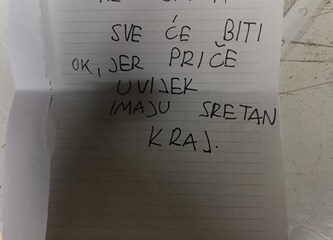 SVE ĆE BITI
OK, JER PRIČE
UVIJEK
IMAJU SRETAN
KRAJ.